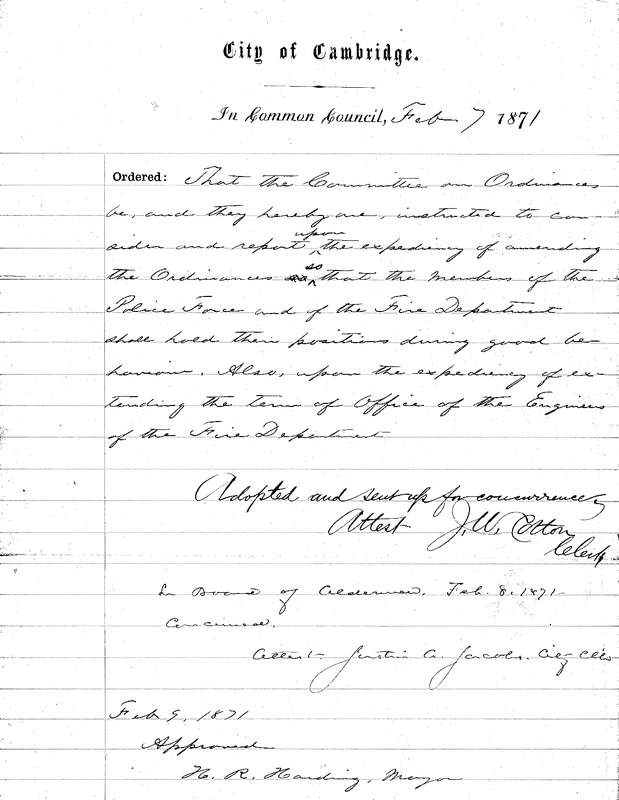 City of Cambridge.
In Common Council, Feb 7 1871
Ordered: That the Committee on Ordinances
be, and they hereby are, instructed to con-
sider and report upon the expediency of amending
the Ordinances so that the members of the
Police Force and of the Fire Department
shall hold their positions during good be-
haviour. Also, upon the expediency of ex-
tending the term of Office of the Engineers
of the Fire Department
Adopted and sent up for concurrence
Attest J. W. Cotton
Clerk
In Board of Aldermen. Feb. 8. 1871
Concurred.
Attest Justin A. Jacobs. City Clerk
Feb 9, 1871
Approved
H. R. Harding, Mayor